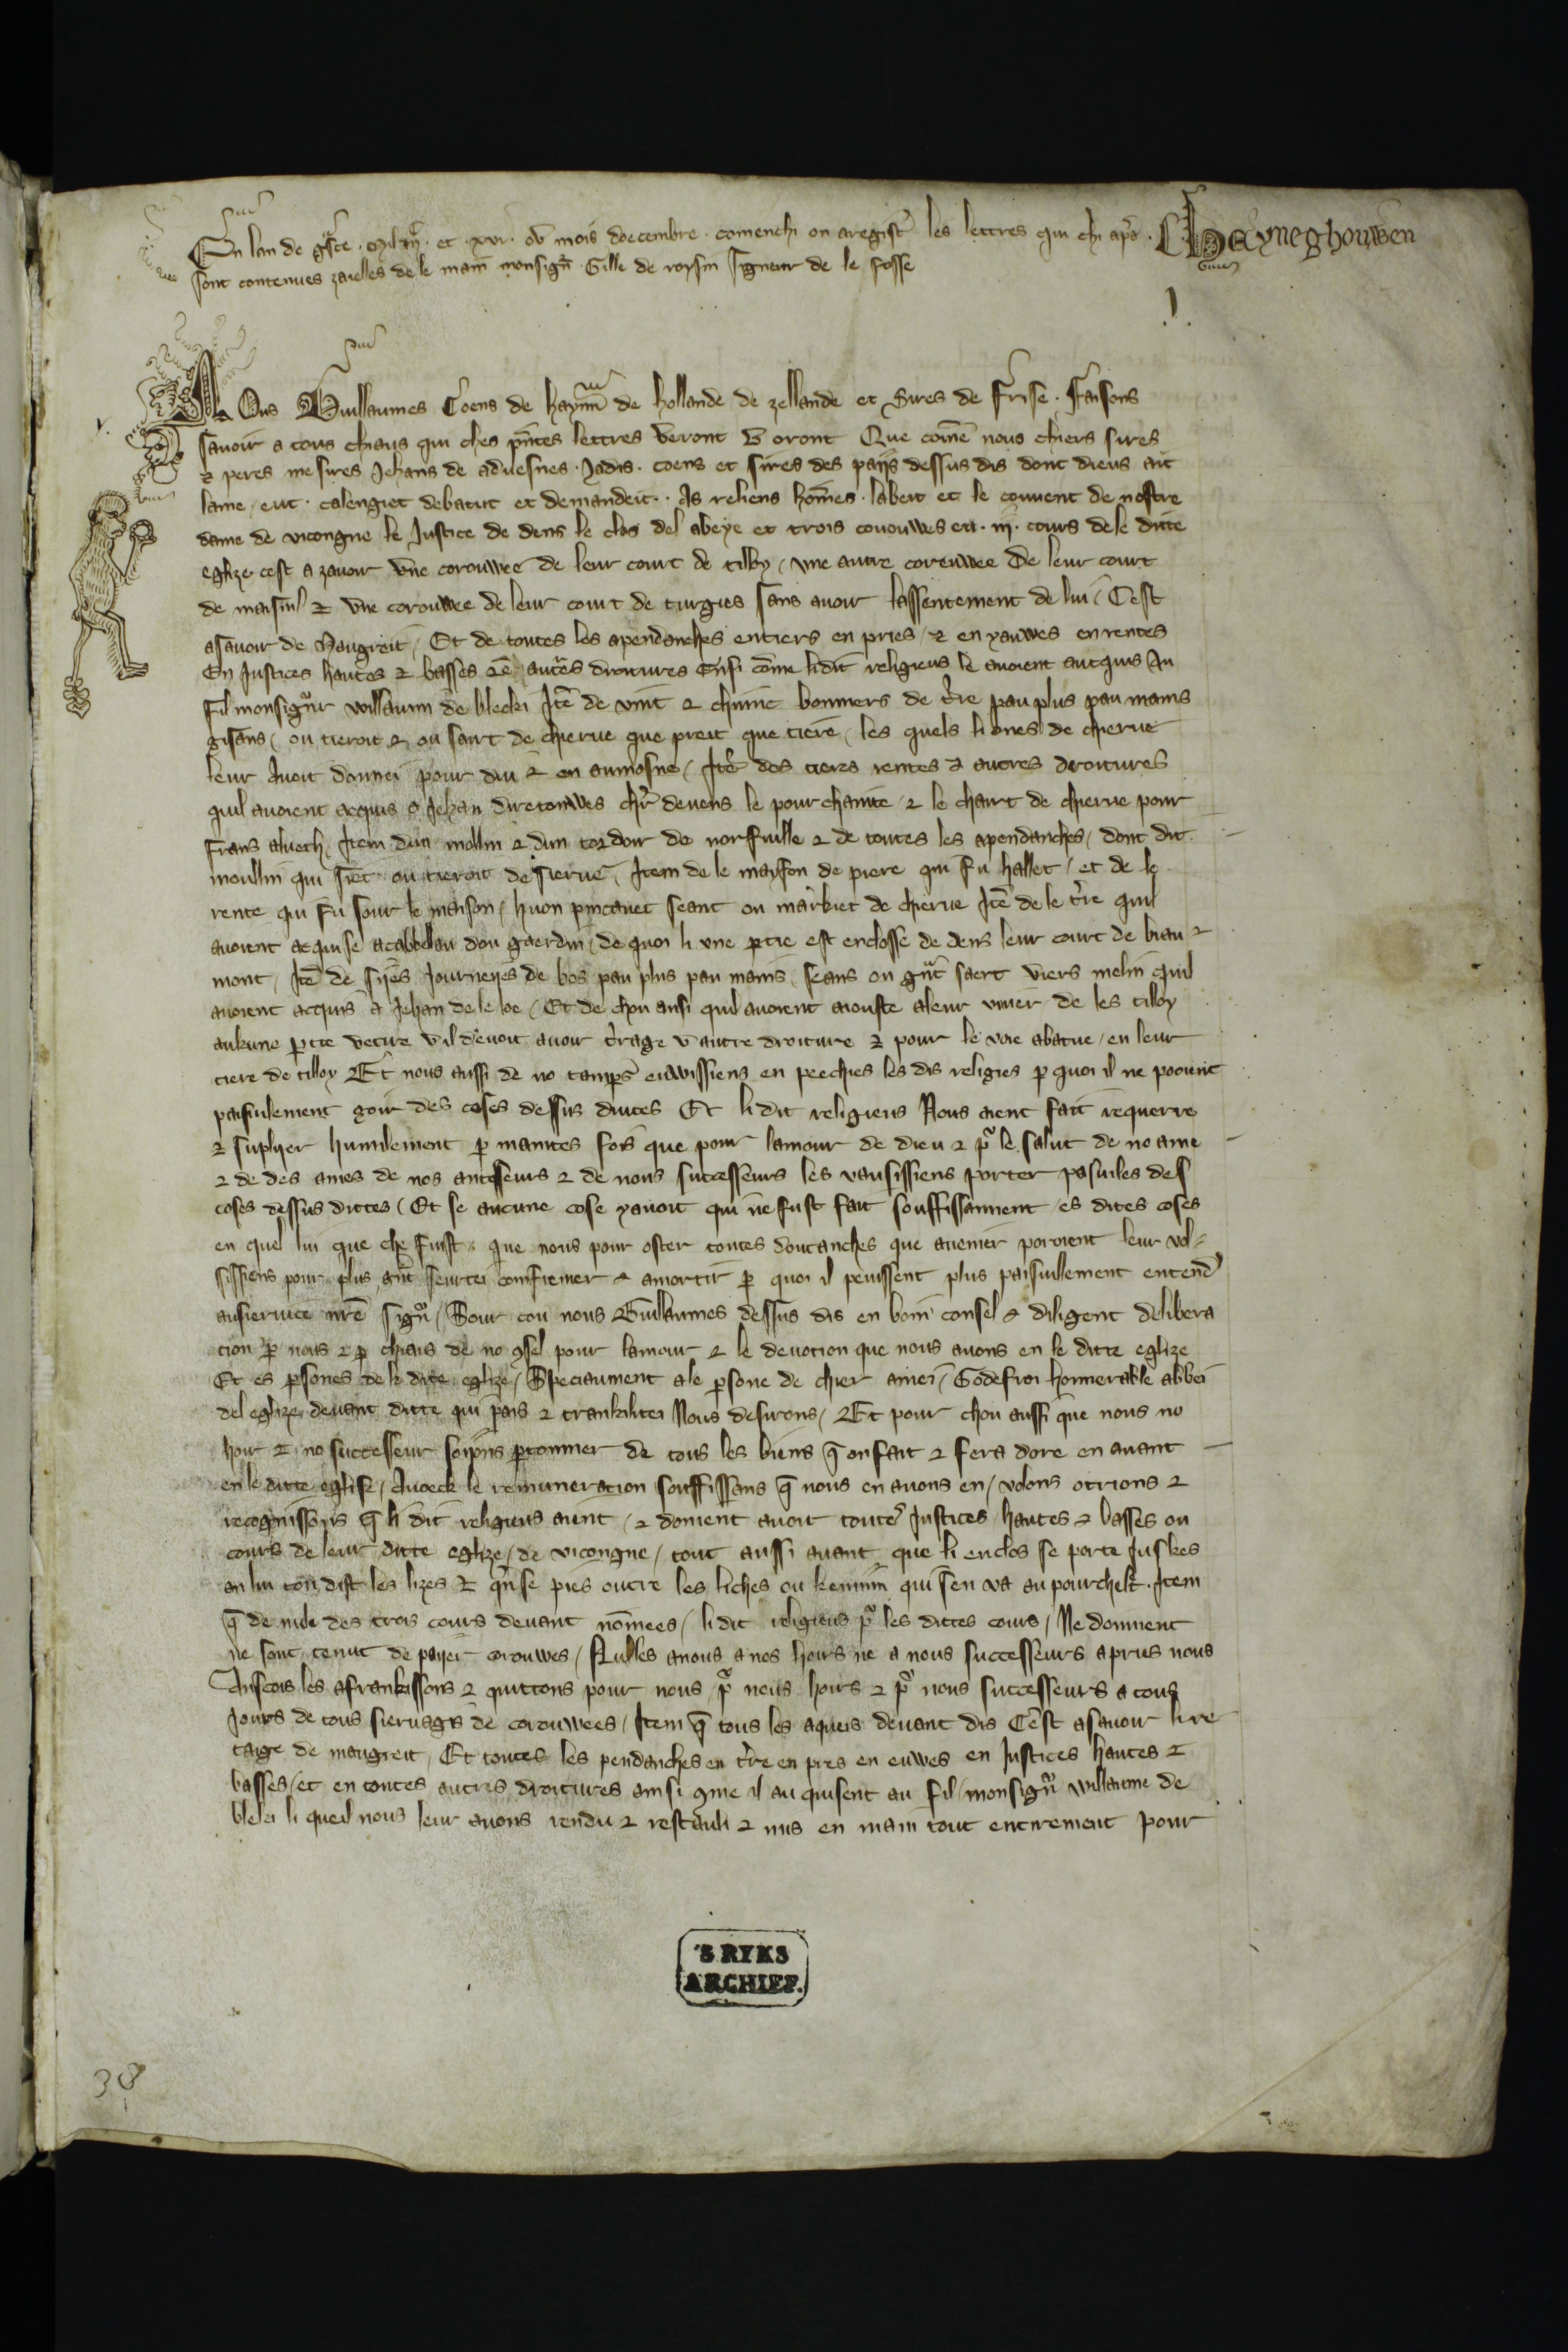 En lan de grace . mil iijc . et . xvi . ou mois doecembre . comenchi on aregistr les lettres qui chi apres .
Haÿneghouwen
sont contenues zaielles de le main monsigneur Gille de roysin signeur de le fosse
1
Nous Guillaumes Coens de haynnau de hollande de zellande et Sires de frise . faisons
savoir a tous chiaus qui ches pñtes lettres veront v oront Que come nous chiers sires
⁊ peres mesires Jehans de advesnes . Jadis . coens et sires des païis dessus dis dont dieus ait
lame / eut . calengiet debatut et demandeit . As reliens homes . labeit et le couvent de nostre
dame de vicongne le Justice de dens le clos del abeye et trois corouwes en . iij . cours de le ditte
eglize cest a zavoir vne corouwee de leur court de tilloy / vne autre corouwee de leur court
de maisnil ⁊ vne corouwee de leur court de turgies sans avoir lassentement de lui / Cest
asavoir de Maugreit / Et de toutes les apendanches entiers en pries / ⁊ en yauwes en rentes
En Justices hautes ⁊ basses autres droitures Ensi come li dit religieus le avoient aucquis Au
fil monsigneur willaum de bleki Ite de vint ⁊ chiunc bonniers de tre pau plus pau mains
gisans / ou tieroit ⁊ ou sart de chierve que preit que tiere / les quels li ones de chierve
leur Avoit donnei pour diu ⁊ en aumosne / Ite des tieres rentes ⁊ autres droitures
quil avoient acquis a Jehan diretonwes chr devens le pourchainte ⁊ le chart de chierve pour
frans alueth / Item dun mollin ⁊ dun tordoir de norfville ⁊ de toutes les apendanches / dont dit
moullin qui siet ou tieroit de sierve / Item de le mayson de piere qui fu hallet / et de le
rente qui fu sour le maison / huon pincavet seant ou markiet de chierve Ite de le tre quil
avoient acquise acabbellau dou gaerdin / de quoi li vne ptie est enclosse de dens leur court de biau
mont / Ite de siies Journeyes de bos pau plus pau mains / seans ou gnt saert viers melin quil
avoient acquis a Jehan de le loe / Et de chou ansi quil avoient aiouste aleur vivier de les tilloy
aukune ptie vecire v il devoit avoir trage v autre droiture ⁊ pour le voie abatue / en leur
tiere de tilloy Et nous aussi de no tamps euwissiens en peechies les dis religies p quoi il ne pooient
paisiulement goir des coses dessus dittes Et li dit religieus Nous aient fait requerre
⁊ suplyer humlement p maintes fois que pour lamour de dieu ⁊ pr le salut de no ame
⁊ de des ames de nos ancesseurs ⁊ de nous successeurs les vausissiens porter pasiules des
coses dessus dittes / Et se aucune cose yavoit qui ne fust fait souffissanment es dites coses
en quel liu que che fuist . que nous pour oster toutes doutanches que avenir poroient leur vol-
sissiens pour plus gnt seurtei confremer ⁊ amortir p quoi il peuissent plus paisiullement entendre
auservice nre signr / Pour cou nous Guillaumes dessus dis en boin consel ⁊ diligent delibera
cion p nous ⁊ p chiaus de no consel pour lamour ⁊ le devotion que nous avons en le ditte eglize
Et es psones de le dite eglize / Speciaument ale psone de chier amei / Godefroi honnerable abbei
del eglize devant ditte qui pais ⁊ trankilitei Nous desirons / Et pour chou aussi que nous no
hoir ⁊ no successeur soiiens pconnier de tous les biens q on fait ⁊ fera dore en avant
en le ditte eglise / Avoeck le remuneration souffissans q nous en avons en / volons otrions ⁊
recognissons q li dit religieus aient / ⁊ doivent avoir toutes Justices / hautes ⁊ basses ou
cours de leur ditte eglize / de vicongne / tout aussi avant que li enclos se porte Juskes
au liu con dist les lizes ⁊ qnse pies outre les liches ou kemin qui sen va au pourchelet . Item
q de nule des trois cours devant nomees / li dit religieus pr les dittes cours / Ne doivent
ne sont tenut de paijer corouwes / Nulles anous a nos hoirs ne a nous successeurs apries nous
Anscois les afrankissons ⁊ quittons pour nous pr nous hoirs ⁊ pr nous successeurs a tous
Jours de tous siervages de corouwees / Item q tous les aqueis devant dis Cest asavoir lire
tage de maugreit / Et toutes les pendanches en tre en pres en euwes en Justices hautes ⁊
basses / et en toutes autres droitures ainsi come il au quisent au fil / monsignr willaume de
bleki li queil nous leur avons rendu ⁊ restauli ⁊ mis en main tout entirement pour
'S RYKS
ARCHIEF.
38